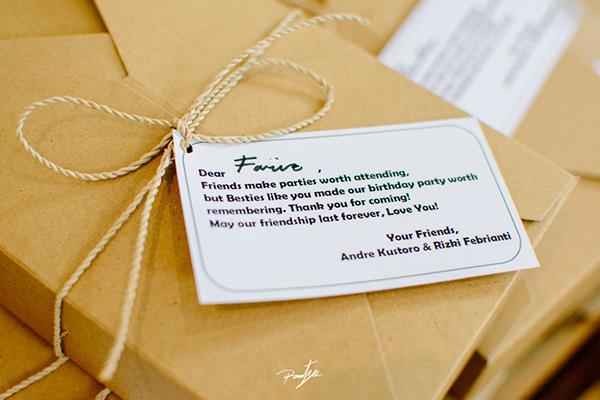 Dear Farive,
Friends make parties worth attending,
but Besties like you made our birthday party worth
remembering. Thank you for coming!
May our friendship last forever, Love You!
Your Friends,
Andre Kustoro & Rizhi Febrianti